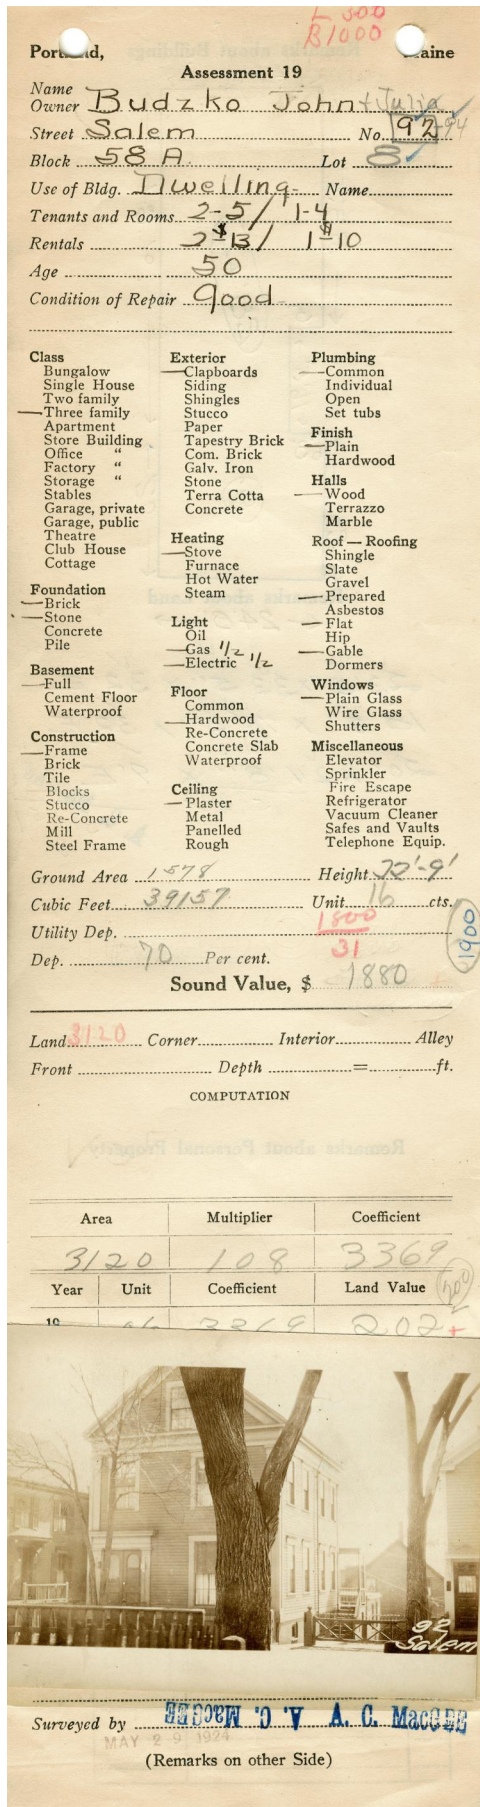 L 300
B 1000
Portland, Maine
Assessment 19
Name
Owner Budzko John + Julia
Street Salem No. 92-94
Block 58 A Lot 8
Use of Bldg. Dwelling Name
Tenants and Rooms 2-5/ 1-4
Rentals 2-$13/ 1-$10
Age 50
Condition of Repair Good
Class
Bungalow
Single House
Two family
Three family
Apartment
Store Building
Office "
Factory "
Storage "
Stables
Garage, private
Garage, public
Theatre
Club House
Cottage
Foundation
Brick
Stone
Concrete
Pile
Basement
Full
Cement Floor
Waterproof
Construction
Frame
Brick
Tile
Blocks
Stucco
Re-Concrete
Mill
Steel Frame
Exterior
Clapboards
Siding
Shingles
Stucco
Paper
Tapestry Brick
Com. Brick
Galv. Iron
Stone
Terra Cotta
Concrete
Heating
Stove
Furnace
Hot Water
Steam
Light
Oil
Gas 1/2
Electric 1/2
Floor
Common
Hardwood
Re-Concrete
Concrete Slab
Waterproof
Ceiling
Plaster
Metal
Panelled
Rough
Plumbing
Common
Individual
Open
Set tubs
Finish
Plain
Hardwood
Halls
Wood
Terrazzo
Marble
Roof — Roofing
Shingle
Slate
Gravel
Prepared
Asbestos
Flat
Hip
Gable
Dormers
Windows
Plain Glass
Wire Glass
Shutters
Miscellaneous
Elevator
Sprinkler
Fire Escape
Refrigerator
Vacuum Cleaner
Safes and Vaults
Telephone Equip.
Ground Area 1578 Height
Cubic Feet 39157 Unit 16 cts.
1800
Utility Dep.
31
1900
Dep. 70 Per cent.
Sound Value, $ 1880 +
Land 3120 Corner Interior Alley
Front Depth = ft.
COMPUTATION
Area Multiplier Coefficient
3120 108 3369
Year Unit Coefficient Land Value
19 3369 202 +
92
Salem
Surveyed by A. C. MacGEE A. C. MacGEE
MAY 29 1924
(Remarks on other Side)